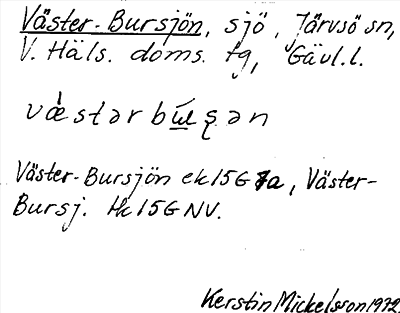 Väster-Bursjön, sjö, Järvsö sn,
V. Häls. doms. tg, Gävl. l.
væ̀stərbu̱ʂən
Väster-Bursjön ek 15G 7a, Väster-
Bursj. Hk 15G NV.
Kerstin Mickelsson 1972.